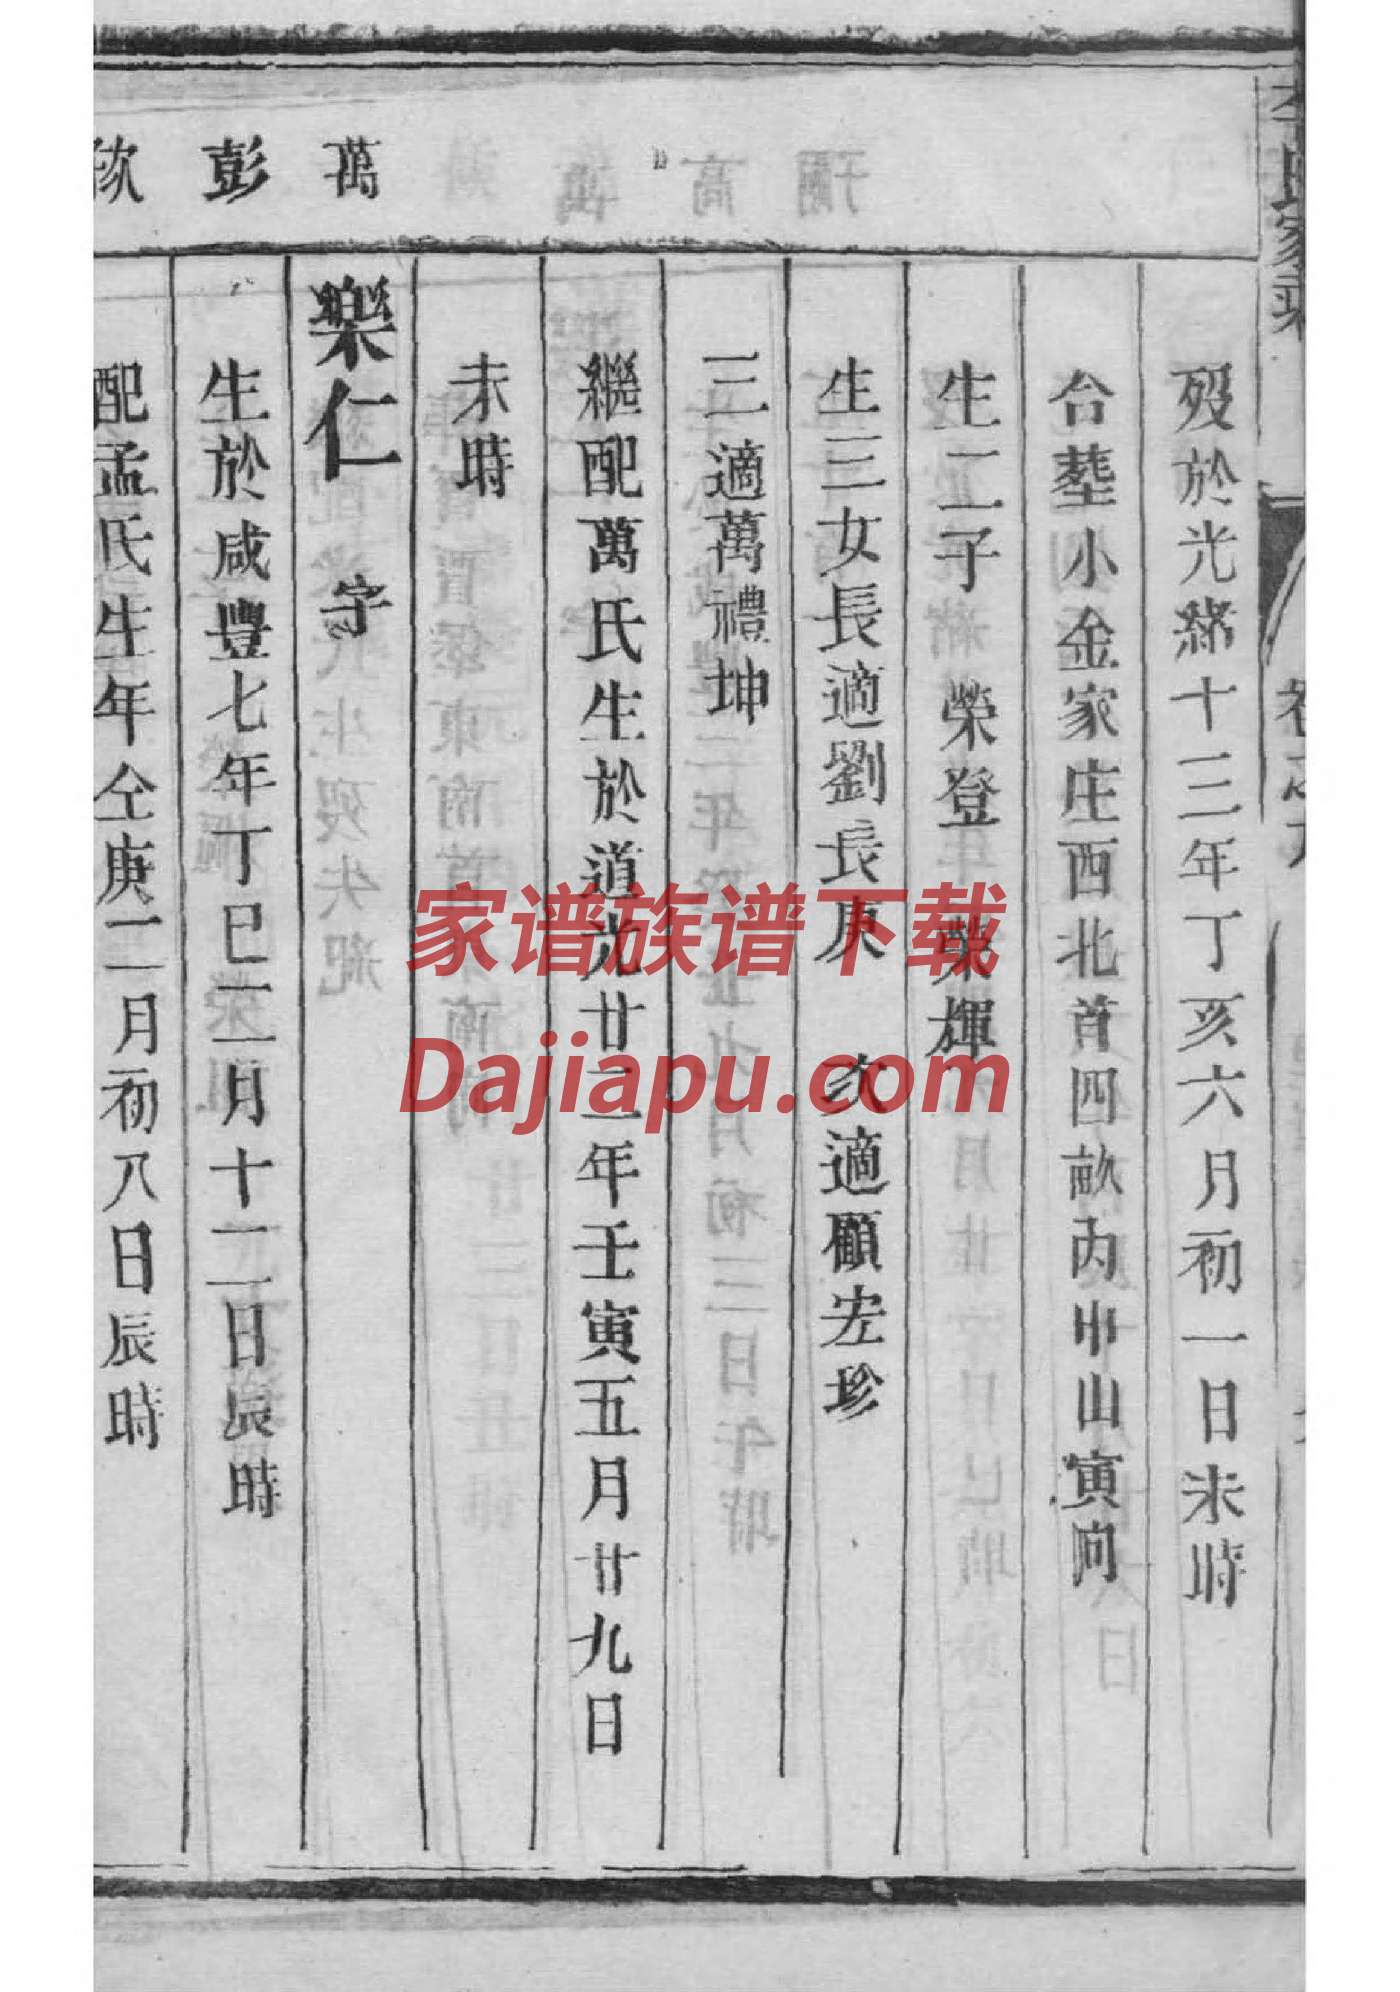 歿於光緒十三年丁亥六月初一日未時
合塟小金家庄西北首四畝丙申山寅向
生二子 榮登 榮輝
生三女長適劉長庚 次適顧宏珍
三適萬禮坤
繼配萬氏生於道光廿二年壬寅五月廿九日
未時
萬
樂仁 字
彭
生於咸豐七年丁巳二月十二日辰時
配孟氏生年仝庚二月初八日辰時
家谱族谱下载
Dajiapu.com